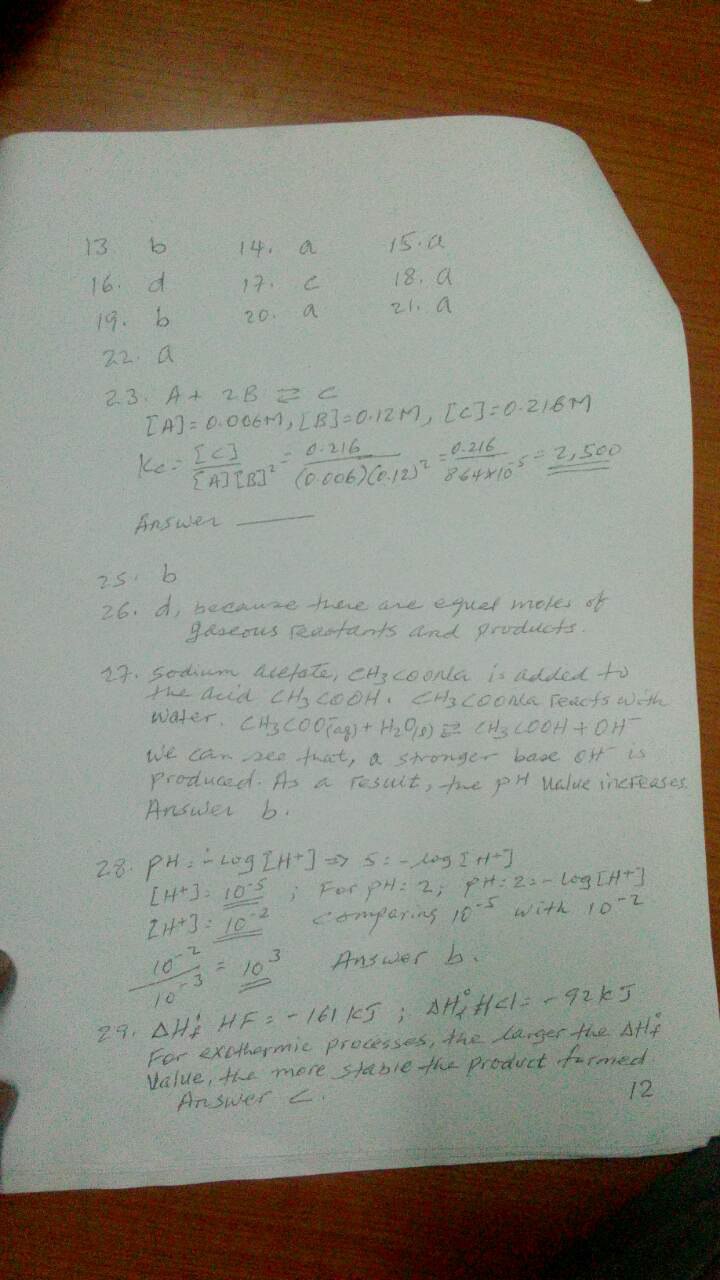 13. b 14. a 15. a
16. d 17. c 18. a
19. b 20. a 21. a
22. a
23. A + 2B ⇌ C
[A]=0.006M, [B]=0.12M, [C]=0.216M
Kc = [C]/[A][B]² = 0.216/(0.006)(0.12)² = 0.216/8.64×10⁻⁵ = 2,500
Answer ———
25. b
26. d, because there are equal moles of
gaseous reactants and products.
27. Sodium acetate, CH3COONa is added to
the acid CH3COOH. CH3COONa reacts with
water. CH3COO⁻(aq) + H2O(l) ⇌ CH3COOH + OH⁻
We can see that, a stronger base OH⁻ is
produced. As a result, the pH value increases.
Answer b.
28. pH = -Log [H+] => 5 = -log [H+]
[H+] = 10⁻⁵ ; For pH = 2; pH = 2 = -Log [H+]
[H+] = 10⁻² Comparing 10⁻⁵ with 10⁻²
10⁻²/10⁻³ = 10³ Answer b.
29. ΔH°f HF = -161 KJ ; ΔH°f HCl = -92 KJ
For exothermic processes, the larger the ΔH°f
Value, the more stable the product formed
Answer C.
12